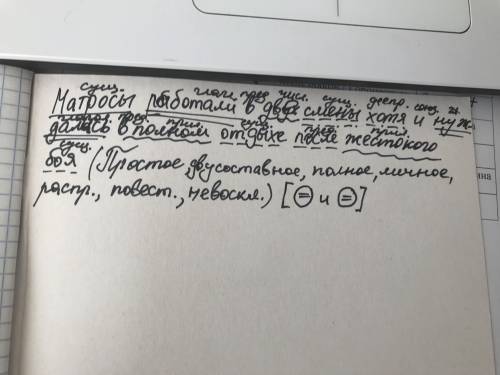 сущ. глаг. пред. числ. сущ. деепр. союз
Матросы работали в две смены хотя и нуж-
пред. прил. сущ. пред. прил.
дались в полном отдыхе после жестокого
сущ.
боя (Простое, двусоставное, полное, личное,
распр., повест., невоскл.) [⊜ и ⊜]